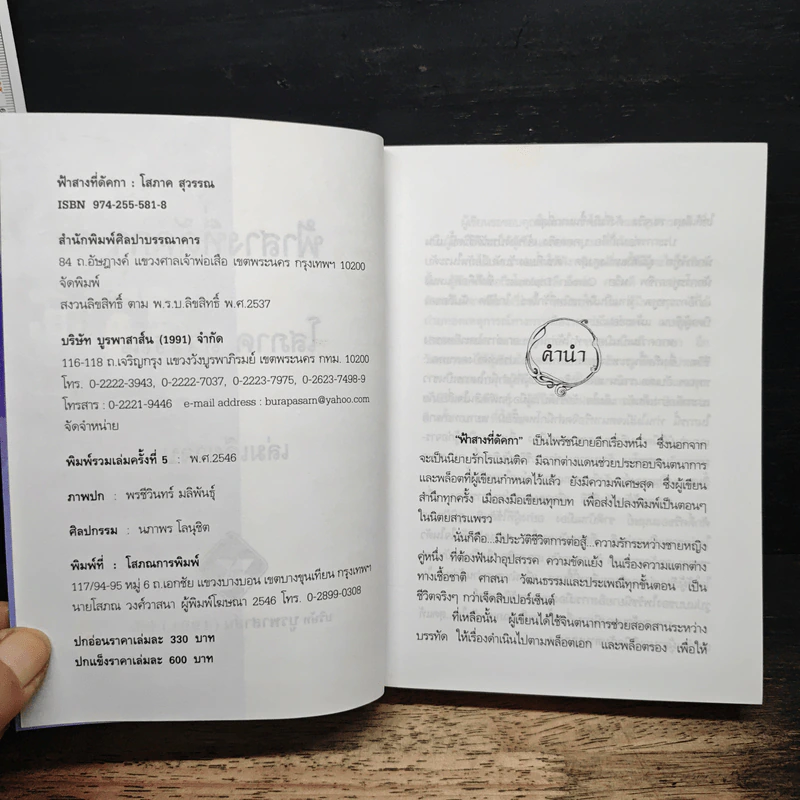 ฟ้าสางที่ดัคกา : โสภาค สุวรรณ
ISBN 974-255-581-8
สำนักพิมพ์ศิลปาบรรณาคาร
84 ถ.อัษฎางค์ แขวงศาลเจ้าพ่อเสือ เขตพระนคร กรุงเทพฯ 10200
จัดพิมพ์
สงวนลิขสิทธิ์ ตาม พ.ร.บ.ลิขสิทธิ์ พ.ศ.2537
บริษัท บูรพาสาส์น (1991) จำกัด
116-118 ถ.เจริญกรุง แขวงวังบูรพาภิรมย์ เขตพระนคร กทม. 10200
โทร. 0-2222-3943, 0-2222-7037, 0-2223-7975, 0-2623-7498-9
โทรสาร : 0-2221-9446 e-mail address : burapasarn@yahoo.com
จัดจำหน่าย
พิมพ์รวมเล่มครั้งที่ 5 : พ.ศ.2546
ภาพปก : พรชีวินทร์ มลิพันธุ์
ศิลปกรรม : นภาพร โลนุชิต
พิมพ์ที่ : โสภณการพิมพ์
117/94-95 หมู่ 6 ถ.เอกชัย แขวงบางบอน เขตบางขุนเทียน กรุงเทพฯ
นายโสภณ วงค์วาสนา ผู้พิมพ์โฆษณา 2546 โทร. 0-2899-0308
ปกอ่อนราคาเล่มละ 330 บาท
ปกแข็งราคาเล่มละ 600 บาท
คำนำ
"ฟ้าสางที่ดัคกา" เป็นไพรัชนิยายอีกเรื่องหนึ่ง ซึ่งนอกจาก
จะเป็นนิยายรักโรแมนติค มีฉากต่างแดนช่วยประกอบจินตนาการ
และพล็อตที่ผู้เขียนกำหนดไว้แล้ว ยังมีความพิเศษสุด ซึ่งผู้เขียน
สำนึกทุกครั้ง เมื่อลงมือเขียนทุกบท เพื่อส่งไปลงพิมพ์เป็นตอนๆ
ในนิตยสารแพรว
นั่นก็คือ...มีประวัติชีวิตการต่อสู้...ความรักระหว่างชายหญิง
คู่หนึ่ง ที่ต้องฟันฝ่าอุปสรรค ความขัดแย้ง ในเรื่องความแตกต่าง
ทางเชื้อชาติ ศาสนา วัฒนธรรมและประเพณีทุกขั้นตอน เป็น
ชีวิตจริงๆ กว่าเจ็ดสิบเปอร์เซ็นต์
ที่เหลือนั้น ผู้เขียนได้ใช้จินตนาการช่วยสอดสานระหว่าง
บรรทัด ให้เรื่องดำเนินไปตามพล็อตเอก และพล็อตรอง เพื่อให้